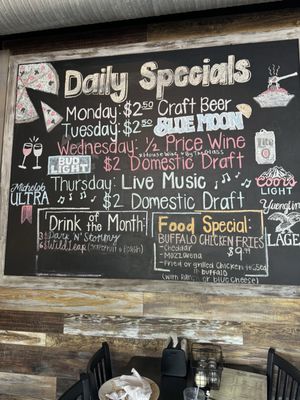 Daily Specials
Monday: $2.50 Craft Beer
Tuesday: $2.50 BLUE MOON
Wednesday: ½ Price Wine
*House Wines By The Glass
BUD LIGHT
$2 Domestic Draft
Lite
Thursday: Live Music
Coors LIGHT
Michelob ULTRA
$2 Domestic Draft
Yuengling
LAGER
Drink of the Month:
Dark 'N' Stormy
Wild Leap
Food Special:
BUFFALO CHICKEN FRIES
$9
- Cheddar
- Mozzarella
- Fried or grilled chicken tossed
in buffalo
(with Ranch or Blue Cheese)